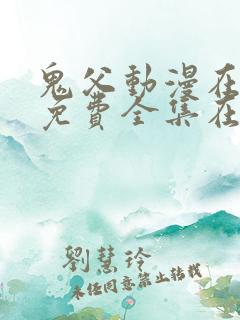 鬼父動漫在
免費全集在
劉慧玲
未经同意禁止转载